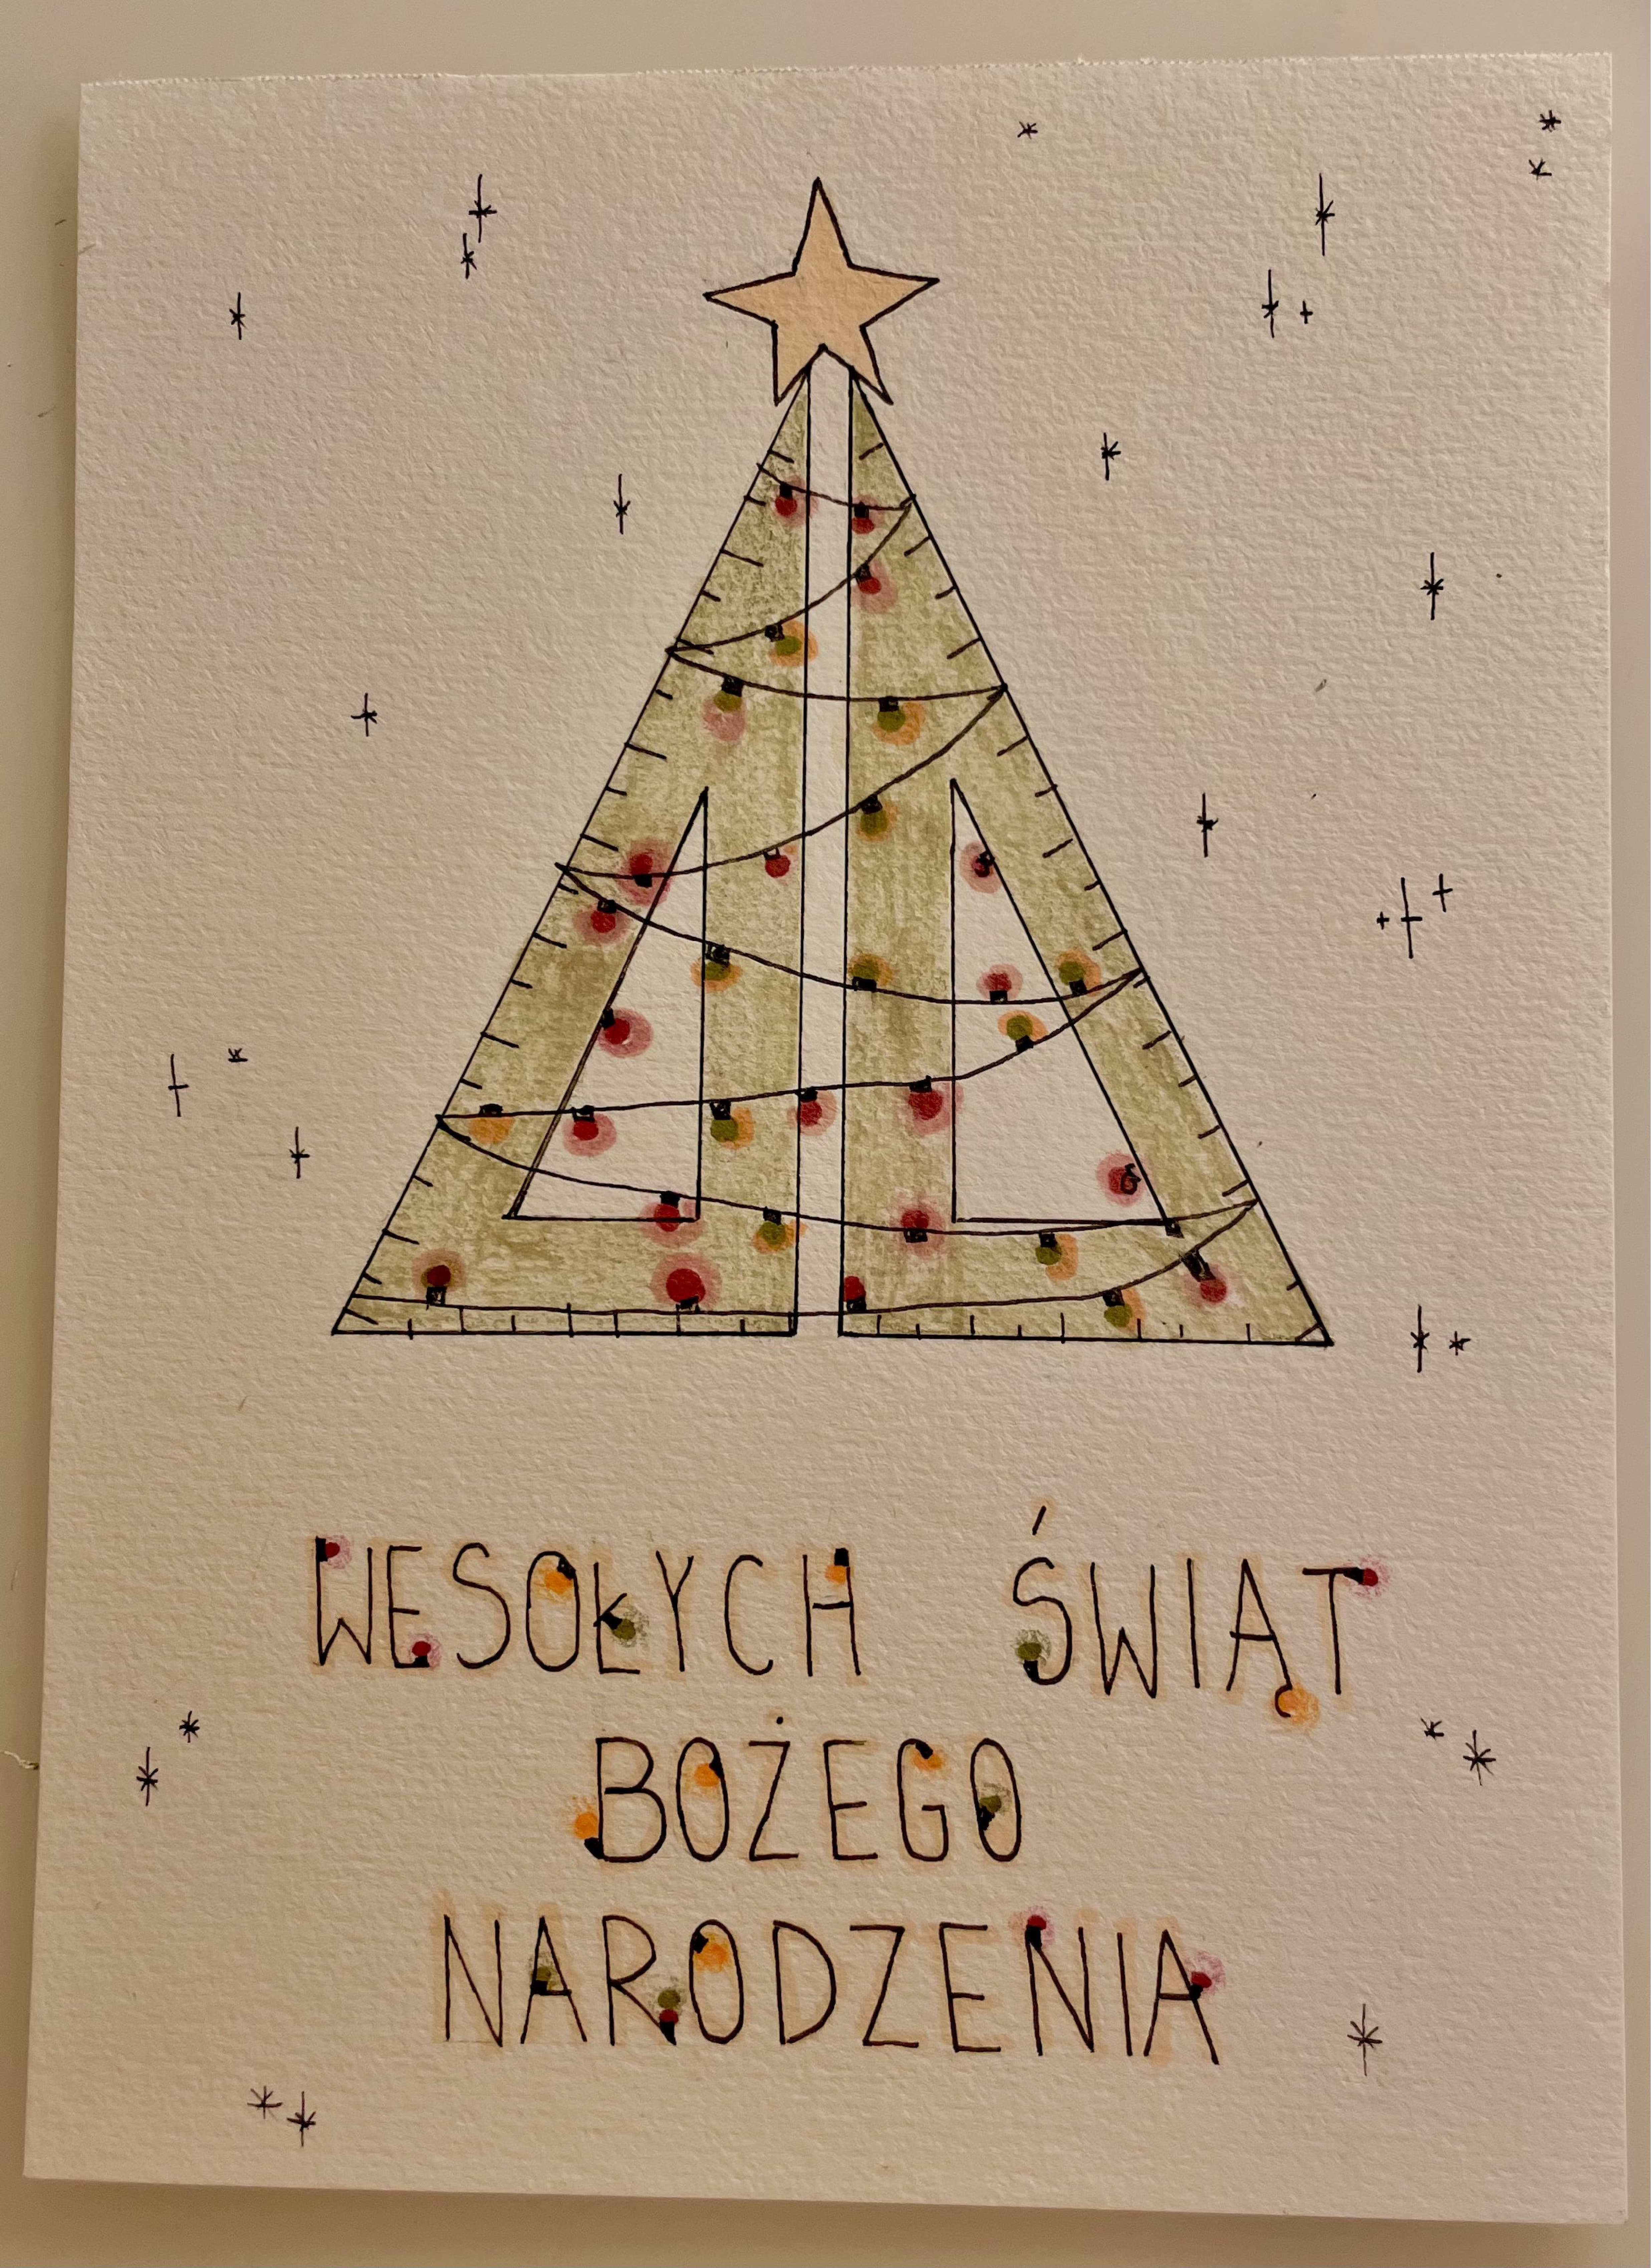 WESOŁYCH ŚWIĄT
BOŻEGO
NARODZENIA